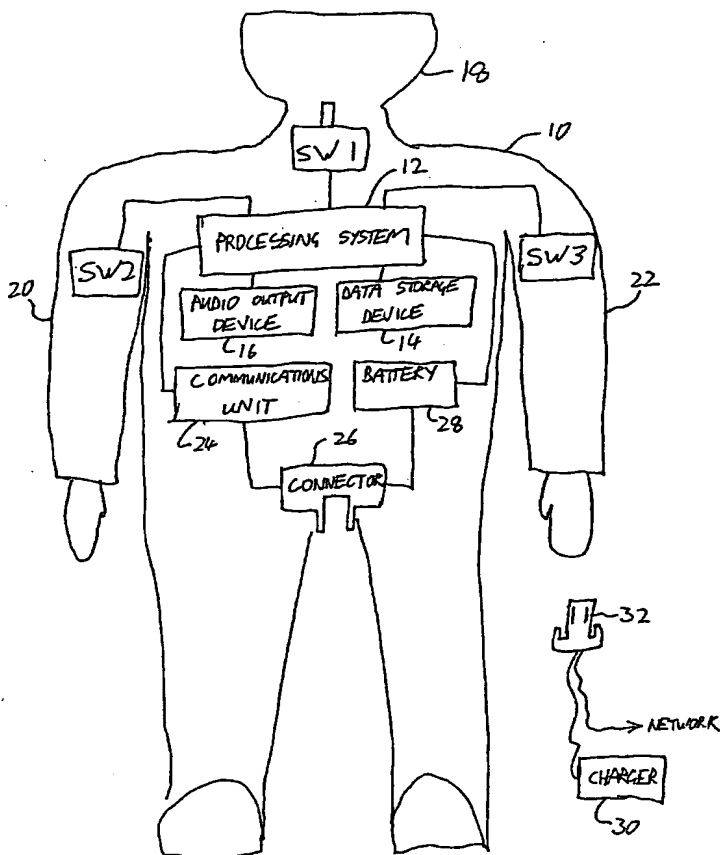 18
10
SW1
12
PROCESSING SYSTEM
SW2
SW3
20
22
AUDIO OUTPUT
DEVICE
DATA STORAGE
DEVICE
16
14
COMMUNICATIONS
UNIT
BATTERY
24
28
26
CONNECTOR
32
NETWORK
CHARGER
30